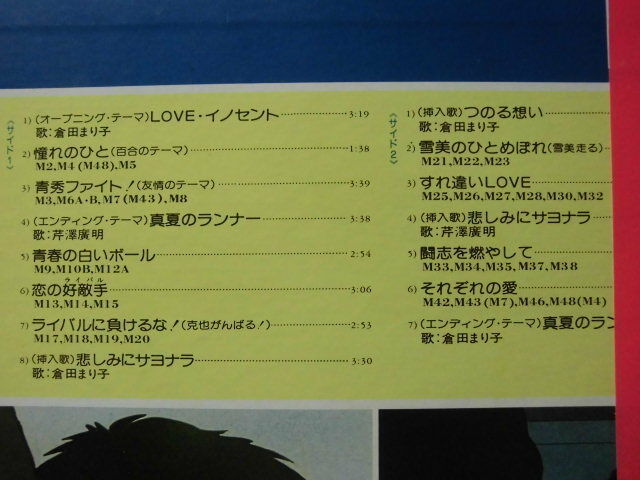 〈サイド1〉
1)(オープニング・テーマ)LOVE・イノセント 3:19
歌:倉田まり子
2)憧れのひと(百合のテーマ) 1:38
M2,M4(M48),M5
3)青秀ファイト!(友情のテーマ) 3:39
M3,M6A・B,M7(M43),M8
4)(エンディング・テーマ)真夏のランナー 3:38
歌:芹澤廣明
5)青春の白いボール 2:54
M9,M10B,M12A
6)恋の好敵手 3:06
ライバル
M13,M14,M15
7)ライバルに負けるな!(克也がんばる!) 2:53
M17,M18,M19,M20
8)(挿入歌)悲しみにサヨナラ 3:30
歌:倉田まり子
〈サイド2〉
1)(挿入歌)つのる想い
歌:倉田まり子
2)雪美のひとめぼれ(雪美走る)
M21,M22,M23
3)すれ違いLOVE
M25,M26,M27,M28,M30,M32
4)(挿入歌)悲しみにサヨナラ
歌:芹澤廣明
5)闘志を燃やして
M33,M34,M35,M37,M38
6)それぞれの愛
M42,M43(M7),M46,M48(M4)
7)(エンディング・テーマ)真夏のラン
歌:倉田まり子